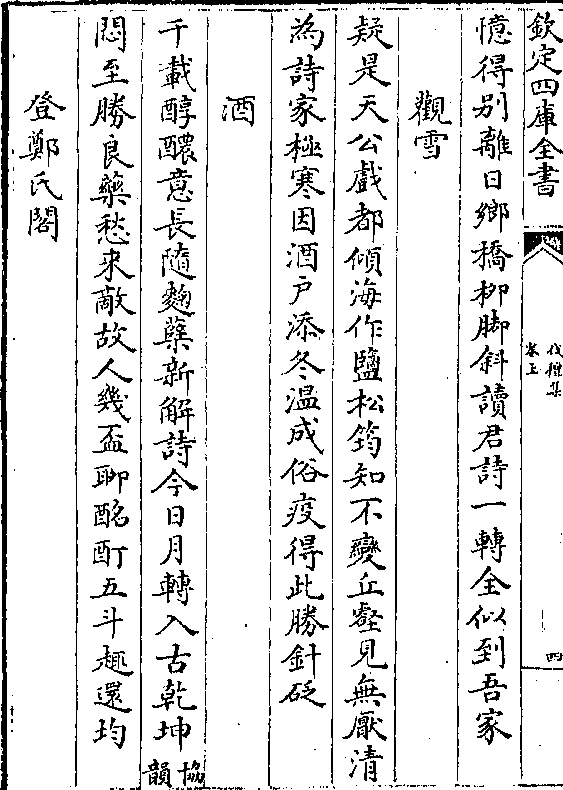 欽定四庫全書
伐檀集
卷上
四
憶得别離日鄉橋栁脚斜讀君詩一轉全似到吾家
觀雪
疑是天公戲都傾海作鹽松筠知不變丘壑見無厭清
為詩家極寒因酒户添冬温成俗疫得此勝針砭
酒
千載醇醲意長隨麴蘖新解詩今日月轉入古乾坤協韻
悶至勝良藥愁来敵故人幾盃聊酩酊五斗趣還均
登鄭氏閣